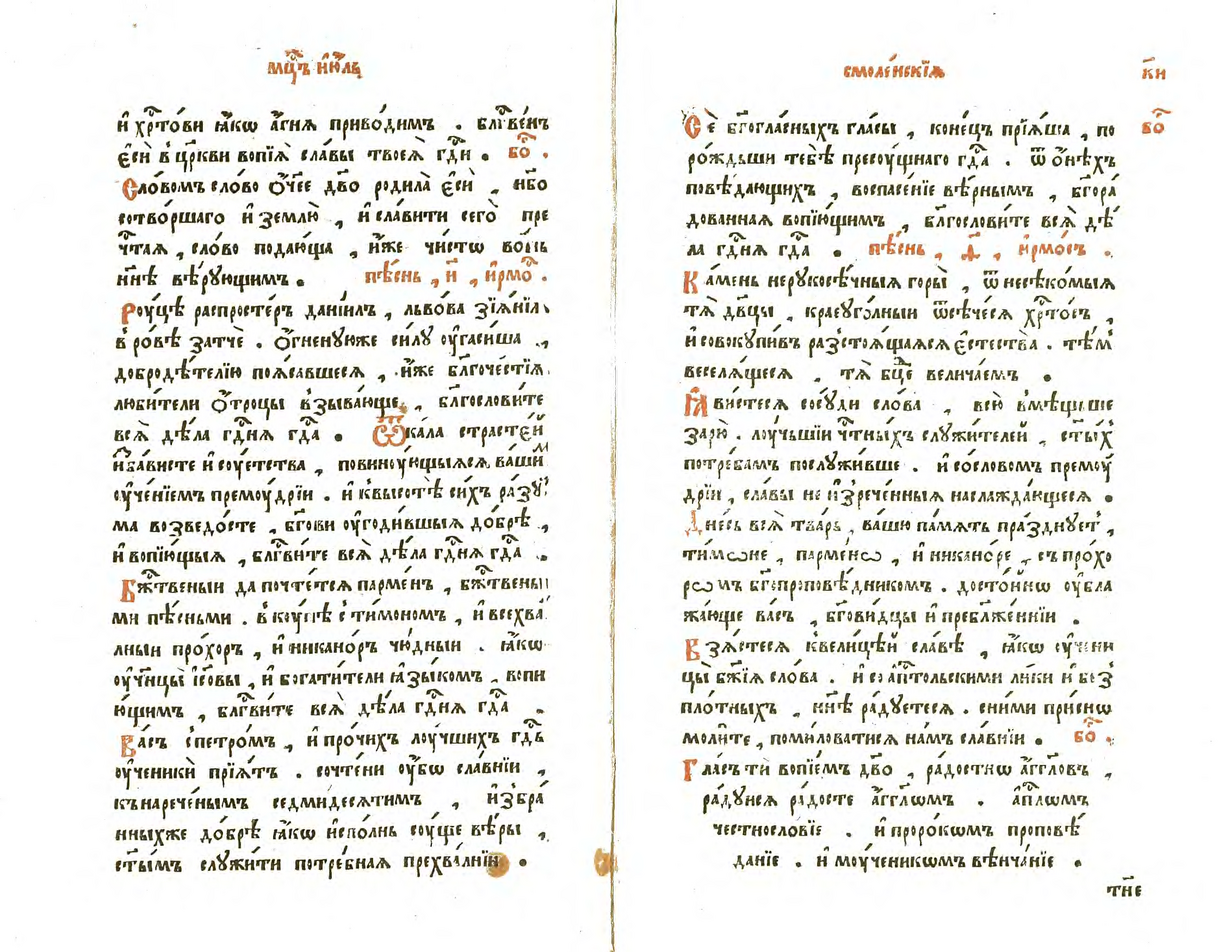 мц҃ъ и҆ю́ль
и҆ хрⷭ҇то́ви ꙗ҆́кѡ а҆́гнѧ приво́димъ . блгⷭ҇ве́нъ
є҆сѝ в҆ цр҃кви вопїѧ̀ сла́вы твоеѧ̀ гдⷭ҇и . бо҃ .
Сло́вомъ сло́во ѻ҆́ч҃ее дв҃о роди́ла є҆сѝ , нб҃о
сотво́ршаго и҆ зе́млю , и҆ сла́вити сего̀ пре
чⷭ҇таѧ , сло́во подаю́ща , и҆́же чи́стѡ во́нь
нн҃ѣ вѣ́рующимъ . пѣ́снь , и҃ , і҆рмо́ .
Роу́цѣ распросте́ръ данїи́лъ , льво́ва зїѧ́нїѧ
в҆ ро́вѣ затчѐ . ѻ҆́гненуюже си́лу оу҆гаси́ша .,
добродѣ́телїю поѧ́савшесѧ , и҆́же блгⷭ҇оче́стїѧ
люби́тели ѻ҆́троцы в҆зыва́юще , блгⷭ҇ослови́те
всѧ̀ дѣ́ла гдⷭ҇нѧ гдⷭ҇а . Ѿ кала страсте́й
и҆ за́висте и҆ соу́етства , повиноу́ющыѧсѧ ва́шим
оу҆че́нїемъ премоу́дрїи . и҆ к҆ высотѣ̀ си́хъ ра́зу
ма возведо́сте , бг҃ови оу҆годи́вшыѧ до́брѣ ,
и҆ вопїю́щыѧ , блгⷭ҇ви́те всѧ̀ дѣ́ла гдⷭ҇нѧ гдⷭ҇а .
Бжⷭ҇твеныи да почте́тсѧ парме́нъ , бжⷭ҇твены
ми пѣ́сньми . в҆коу́пѣ с҆ ти́мономъ , и҆ всехва́
лныи про́хоръ , и҆ никано́ръ чю́дныи . ꙗ҆́кѡ
оу҆чн҃цы і҆с҃овы , и҆ богати́тели ꙗ҆зы́комъ . вопи
ю҆́щимъ , блгⷭ҇ви́те всѧ̀ дѣ́ла гдⷭ҇нѧ гдⷭ҇а .
Ва́съ с҆ петро́мъ , и҆ про́чихъ лоу́чшихъ гдⷭ҇ь
оу҆ченикѝ прїѧ́тъ . сочте́ни оу҆́бѡ сла́внїи ,
къ нарече́нымъ седмидесѧ́тимъ , и҆збра́
нныхже до́брѣ ꙗ҆́кѡ и҆спо́лнь соу́ще вѣ́ры ,
ст҃ы́мъ служи́ти потре́бная прехва́лнїи .
смоле́нскїѧ к҃и
Сѐ бг҃огла́сныхъ гла́сы , коне́цъ прїѧ́ша , по бо҃
ро́ждьши тебѣ̀ пресоу́щнаго гдⷭ҇а . ѿ ѻ҆́нѣхъ
повѣ́дающихъ , воспасе́нїе вѣ́рнымъ , бг҃ора́
дованнаѧ вопїю́щимъ , блгⷭ҇ослови́те всѧ̀ дѣ́
ла гдⷭ҇нѧ гдⷭ҇а . пѣ́снь , д҃ , і҆рмо́съ .
Ка́мень нерукосѣ́чныѧ горы̀ , ѿ несѣко́мыѧ
тѧ̀ дв҃цы , краеуго́лныи ѿсѣ́чесѧ хрⷭ҇то́съ ,
и҆ совокупи́въ разстоѧ́щаѧсѧ є҆стества̀ . тѣ́м
веселѧ́щесѧ , тѧ̀ бц҃е велича́емъ .
Ꙗ҆ви́стесѧ сосу́ди сло́ва , всю̀ в҆мѣ́щьше
зарю̀ . лоу́чьшїи чⷭ҇тныхъ служи́телей , ст҃ы́х
потре́бамъ послужи́вше . и҆ со сло́вомъ премоу́
дрїи , сла́вы неи҆зрече́нныѧ наслажда́ющесѧ .
Дне́сь всѧ̀ тва́рь , ва́шю па́мять пра́зднует ,
ти́мѡне , парме́нѡ , и҆ никано́ре , съ про́хо
рѡмъ бг҃опроповѣ́дникомъ . досто́йнѡ оу҆бла
жа́юще ва́съ , бг҃ови́дцы и҆ преблаже́ннїи .
Взѧ́стесѧ к҆ вели́цѣй сла́вѣ , ꙗ҆́кѡ оу҆чени
цы̀ бж҃їѧ сло́ва . и҆ со а҆пⷭ҇тольскими ли́ки и҆ без
пло́тныхъ , нн҃ѣ ра́дуетесѧ . с ни́ми при́снѡ
моли́те , поми́ловатисѧ на́мъ сла́внїи . бо҃ .
Гла́съ ти вопїе́мъ дв҃о , ра́достнѡ а҆́гг҃ловъ ,
ра́дуисѧ ра́досте а҆́гг҃лѡмъ . а҆пⷭ҇лѡмъ
честносло́вїе . и҆ проро́кѡмъ проповѣ́
данїе . и҆ моу́ченикѡмъ вѣнча́нїе .
тн҃е